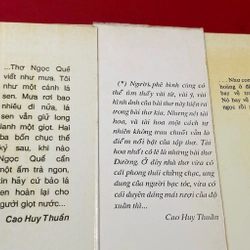 ...Thơ Ngọc Quế
viết như mưa. Tôi
như một cánh lá
sen. Mưa rơi bao
nhiêu đi nữa, lá
sen vẫn giữ long
lanh một giọt. Hai
ba bốn chục thế
kỷ sau, khi nào
Ngọc Quế cần
một ấm trà ngon,
xin hãy cứ bảo lá
sen hoàn lại cho
người giọt nước...
Cao Huy Thuần
(*) Người phê bình cũng có
thể tìm thấy vài từ, vài ý, vài
hình ảnh của bài thơ này hiện ra
trong bài thơ kia. Nhưng nét tài
hoa, và tài hoa một cách tự
nhiên không mua chuốc vẫn là
điểm nổi bật của tập thơ. Tài
hoa nhất có lẽ là những bài thơ
Đường. Ở đấy nhà thơ vừa có
cái phong thái chững chạc, ung
dung của người bạc tóc, vừa có
cái duyên dáng mắt rượi của độ
xuân thì...
Cao Huy Thuần
...Như con
hoàng ở đ
trong thơ
Nó bay về
bay về
ngọc rồi